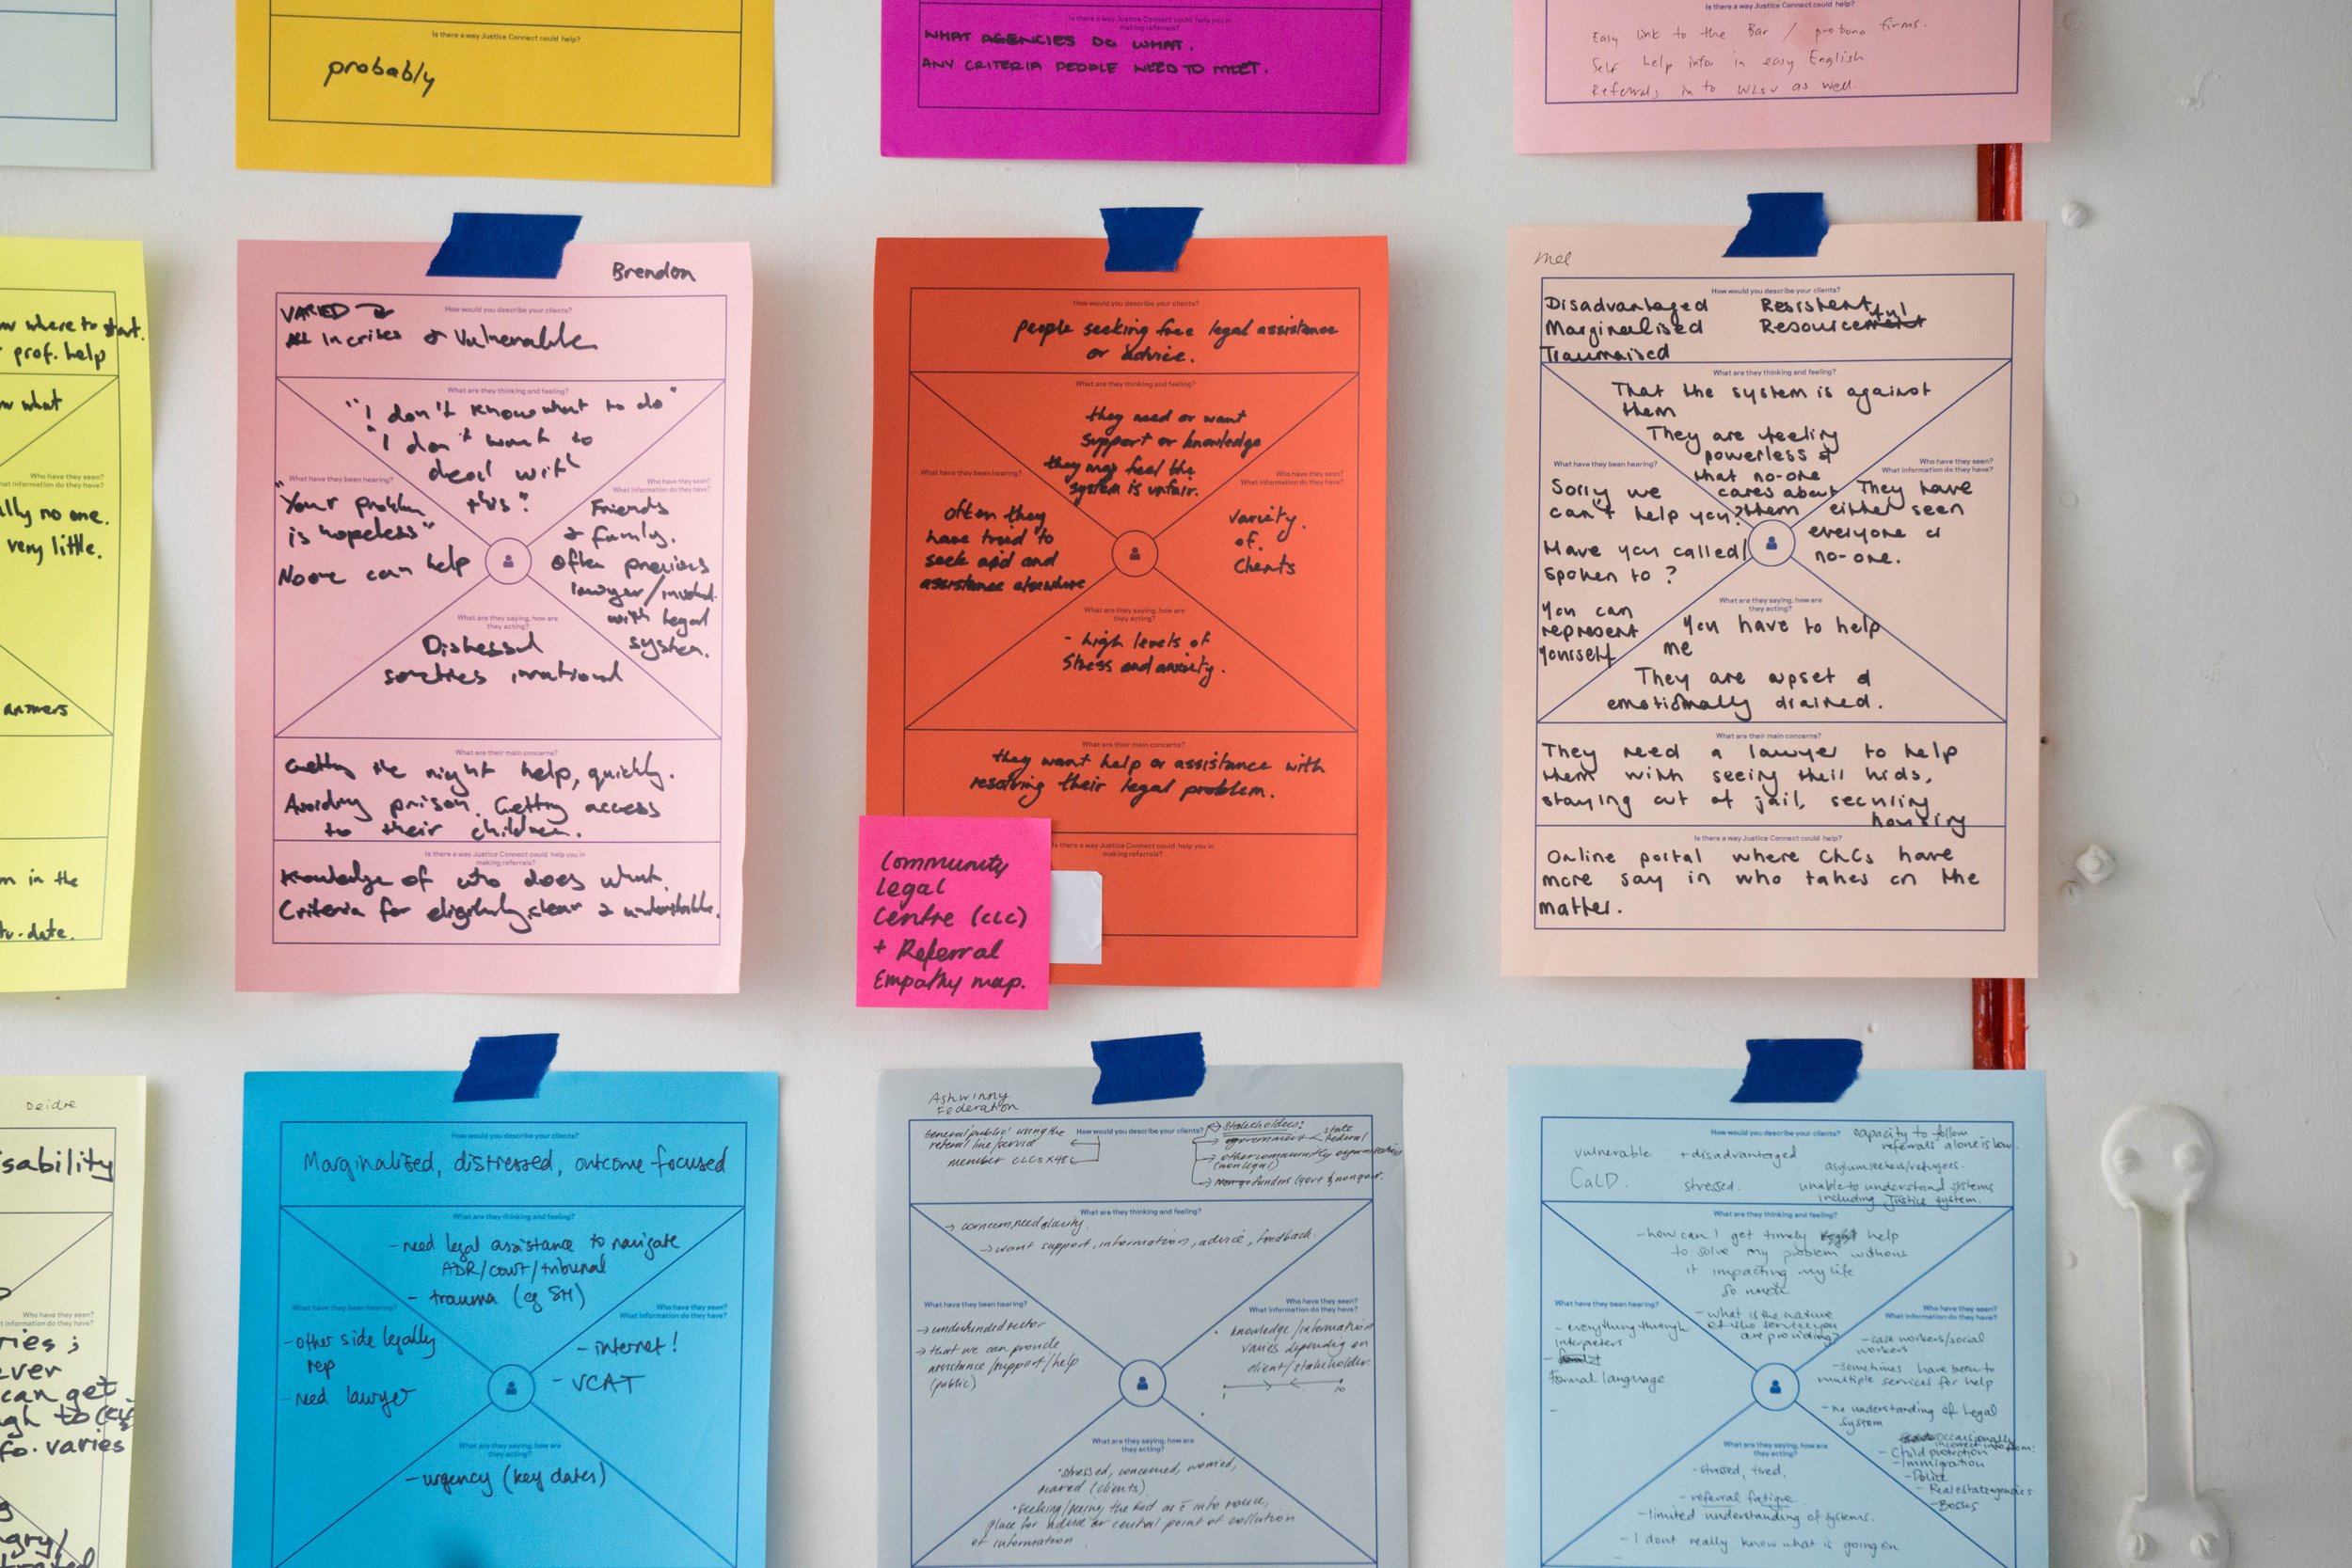 Is there a way Justice Connect could help?
probably
Is there a way Justice Connect could help you in
making referrals?
WHAT AGENCIES DO WHAT.
ANY CRITERIA PEOPLE NEED TO MEET.
Is there a way Justice Connect could help?
Easy link to the Bar / probono firms.
Self help infor in easy English
Referrals in to WLSV as well.
where to start.
prof. help
what
Who have they seen?
What information do they have?
no one.
very little.
answers
in the
date.
Brendon
How would you describe your clients?
VARIED
All In crises & Vulnerable
What are they thinking and feeling?
"I don't know what to do"
"I don't want to
deal with
this"
What have they been hearing?
"Your problem
is hopeless"
Noone can help
Who have they seen?
What information do they have?
Friends
& family.
Often previous
lawyer/involved
with legal
system.
What are they saying, how are
they acting?
Distressed
sometimes irrational
What are their main concerns?
Getting the right help, quickly.
Avoiding prison. Getting access
to their children.
Is there a way Justice Connect could help you in
making referrals?
Knowledge of who does what.
Criteria for eligibility, clear & understandable.
How would you describe your clients?
people seeking free legal assistance
or advice.
What are they thinking and feeling?
they need or want
support or knowledge
they may feel the
system is unfair.
What have they been hearing?
often they
have tried to
seek aid and
assistance elsewhere
Who have they seen?
What information do they have?
variety
of
clients
What are they saying, how are
they acting?
- high levels of
stress and anxiety.
What are their main concerns?
they want help or assistance with
resolving their legal problem.
Is there a way Justice Connect could help you in
making referrals?
Community
Legal
Centre (CLC)
+ Referral
Empathy map.
Mel
How would you describe your clients?
Disadvantaged Resistent
Marginalised Resourceful
Traumaised
What are they thinking and feeling?
That the system is against
them
They are feeling
powerless &
that no-one
cares about
them
What have they been hearing?
Sorry we
can't help you?
Have you called/
spoken to?
You can
represent
yourself
Who have they seen?
What information do they have?
They have
either seen
everyone or
no-one.
What are they saying, how are
they acting?
You have to help
me
They are upset &
emotionally drained.
What are their main concerns?
They need a lawyer to help
them with seeing their kids,
staying out of jail, securing
housing
Is there a way Justice Connect could help?
Online portal where CLCs have
more say in who takes on the
matter.
Deidre
Who have they seen?
What information do they have?
can get
varies
How would you describe your clients?
Marginalised, distressed, outcome-focused
What are they thinking and feeling?
- need legal assistance to navigate
ADR/court/tribunal
- trauma (eg SH)
What have they been hearing?
- other side legally
rep
- need lawyer
Who have they seen?
What information do they have?
- internet!
- VCAT
What are they saying, how are
they acting?
- urgency (key dates)
Ashwinny
Federation
How would you describe your clients?
General 'public' using the
referral line/service
member CLCs x48
Stakeholders:
government state
federal
other community organisations
(non legal)
funders (govt & nongovt.
What are they thinking and feeling?
→ concern, need clarity.
→ want support, information, advice, feedback.
What have they been hearing?
→ underfunded sector
→ that we can provide
assistance/support/help
(public)
Who have they seen?
What information do they have?
knowledge/information
varies depending on
client/stakeholder.
1 10
What are they saying, how are
they acting?
• stressed, concerned, worried,
scared (clients)
place for advice or central point of collation
of information
How would you describe your clients?
vulnerable + disadvantaged
CaLD. stressed.
capacity to follow
referrals alone is low.
asylum seekers/refugees.
unable to understand systems
including Justice system.
What are they thinking and feeling?
- how can I get timely help
to solve my problem without
it impacting my life
so much
- what is the nature
of the service you
are providing?
What have they been hearing?
- everything through
interpreters
Formal language
Who have they seen?
What information do they have?
- case workers/social
workers
- sometimes have been to
multiple services for help
- no understanding of legal
system
occasionally
incorrect info from:
- Child protection
- Immigration
- Police
- Real estate agencies
- Bosses
What are they saying, how are
they acting?
- stressed, tired.
- referral fatigue.
- limited understanding of systems.
- I dont really know what is going on